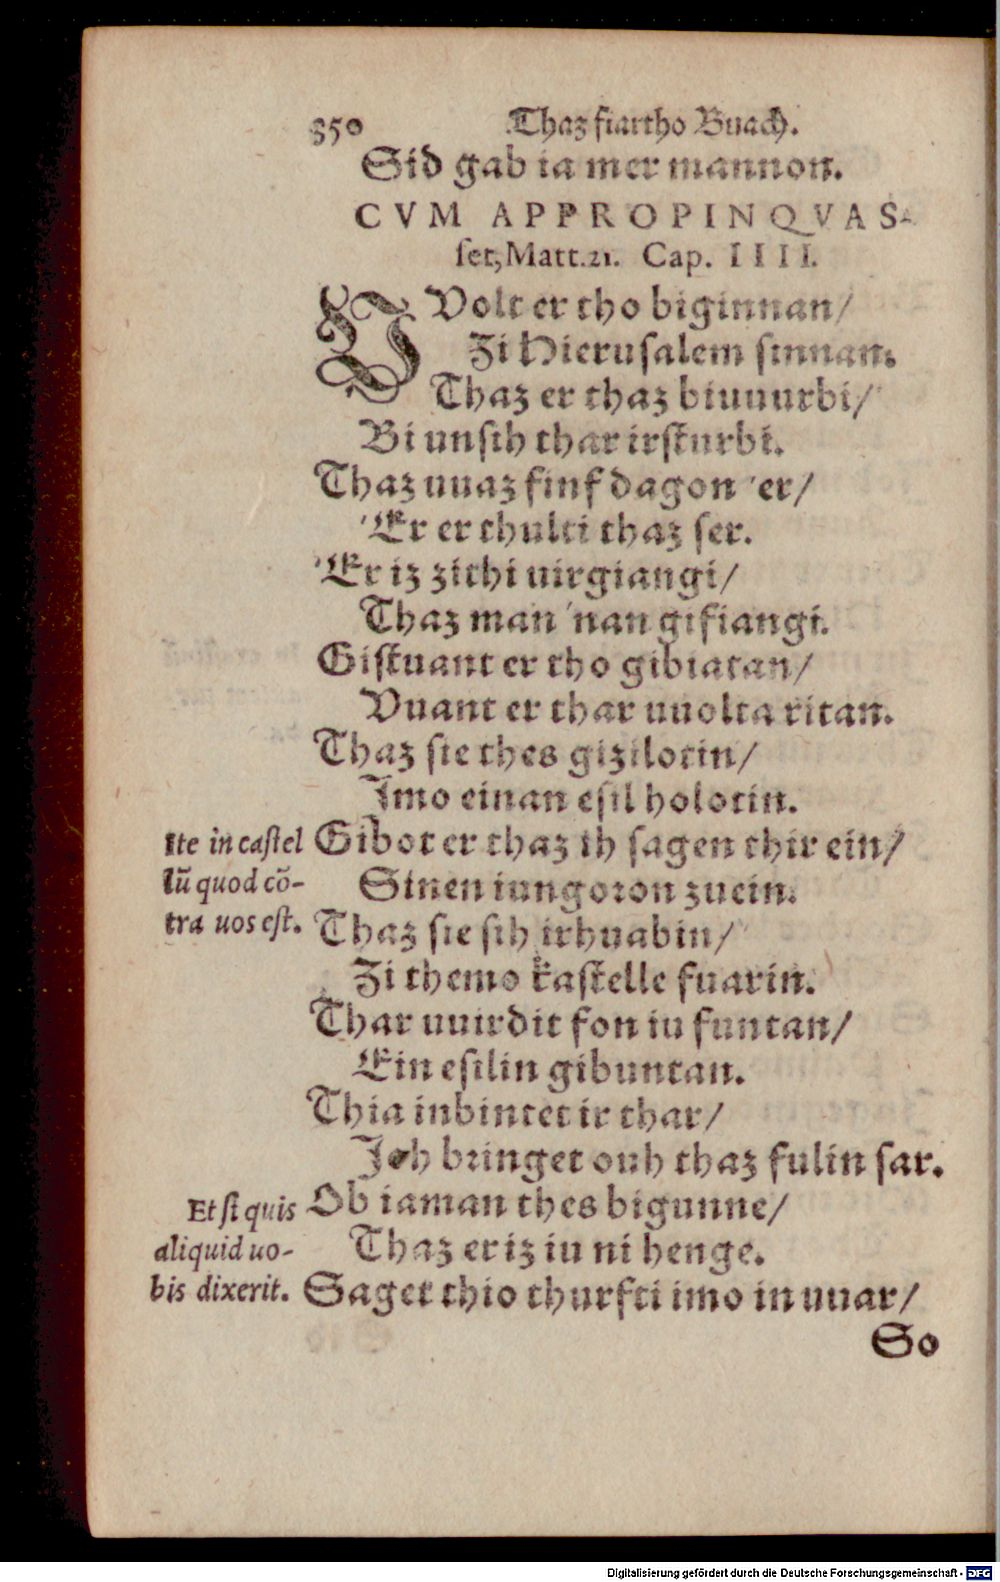 350 Thaz fiartho Buach.
Sid gab ia mer mannon.
CVM APPROPINQVAS-
ſet, Matt.21. Cap. IIII.
VVolt er tho biginnan/
Zi Hieruſalem ſinnan.
Thaz er thaz biuuurbi/
Bi unſih thar irſturbi.
Thaz uuaz finf dagon 'er/
'Er er thulti thaz ſer.
'Er iz zithi uirgiangi/
Thaz man 'nan gifiangi.
Giſtuant er tho gibiatan/
Vuant er thar uuolta ritan.
Thaz ſie thes gizilotin/
Imo einan eſil holotin.
Ite in caſtel
lũ quod cõ-
tra uos eſt.
Gibot er thaz ih ſagen thir ein/
Sinen iungoron zuein.
Thaz ſie ſih irhuabin/
Zi themo kaſtelle fuarin.
Thar uuirdit fon iu funtan/
Ein eſilin gibuntan.
Thia inbintet ir thar/
Joh bringet ouh thaz fulin ſar.
Et ſi quis
aliquid uo-
bis dixerit.
Ob iaman thes bigunne/
Thaz er iz iu ni henge.
Saget thio thurfti imo in uuar/
So
Digitalisierung gefördert durch die Deutsche Forschungsgemeinschaft - DFG